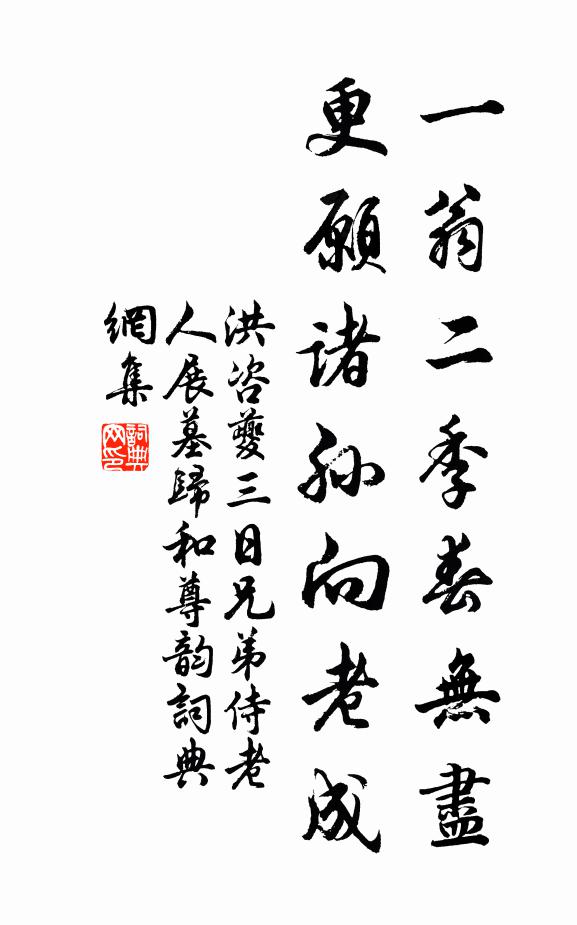 一翁二季春無盡
更願諸孫向老成
洪咨夔三日兄弟侍老
人展墓歸和尊韵詞典
網集
詞典
网印